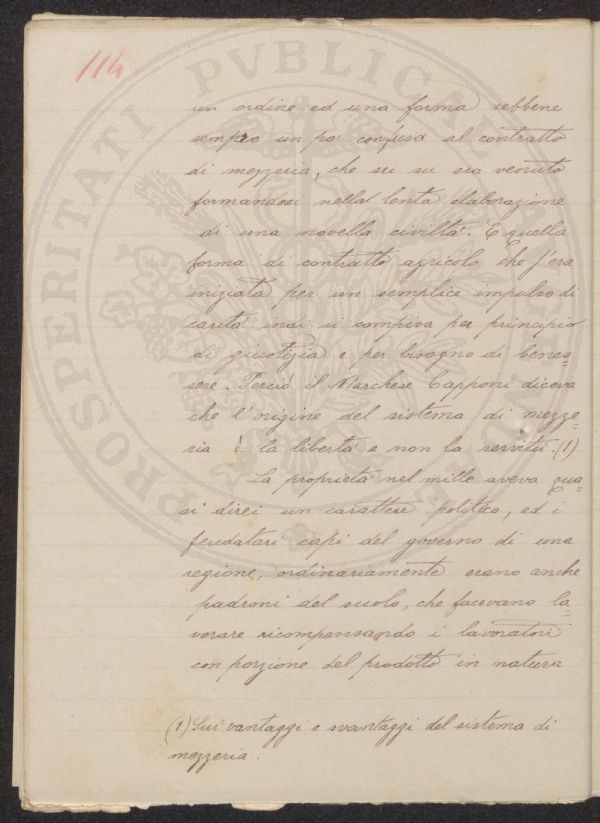 114
un ordine ed una forma sebbene
sempre un po' confusa al contratto
di mezzeria, che su su era venuto
formandosi nella lenta elaborazione
di una novella civiltà. E quella
forma di contratto agricolo che s'era
iniziata per un semplice impulso di
carità indi si compiva per principio
di giustizia e per bisogno di benes=
sere. Perciò il Marchese Capponi diceva
che l'origine del sistema di mezze=
ria è la libertà e non la servitù. (1)
La proprietà nel mille aveva qua=
si direi un carattere politico, ed i
feudatari capi del governo di una
regione, ordinariamente erano anche
padroni del suolo, che facevano la=
vorare ricompensando i lavoratori
con porzione del prodotto in natura
(1) Sui vantaggi e svantaggi del sistema di
mezzeria.
PROSPERITATI PVBLICAE